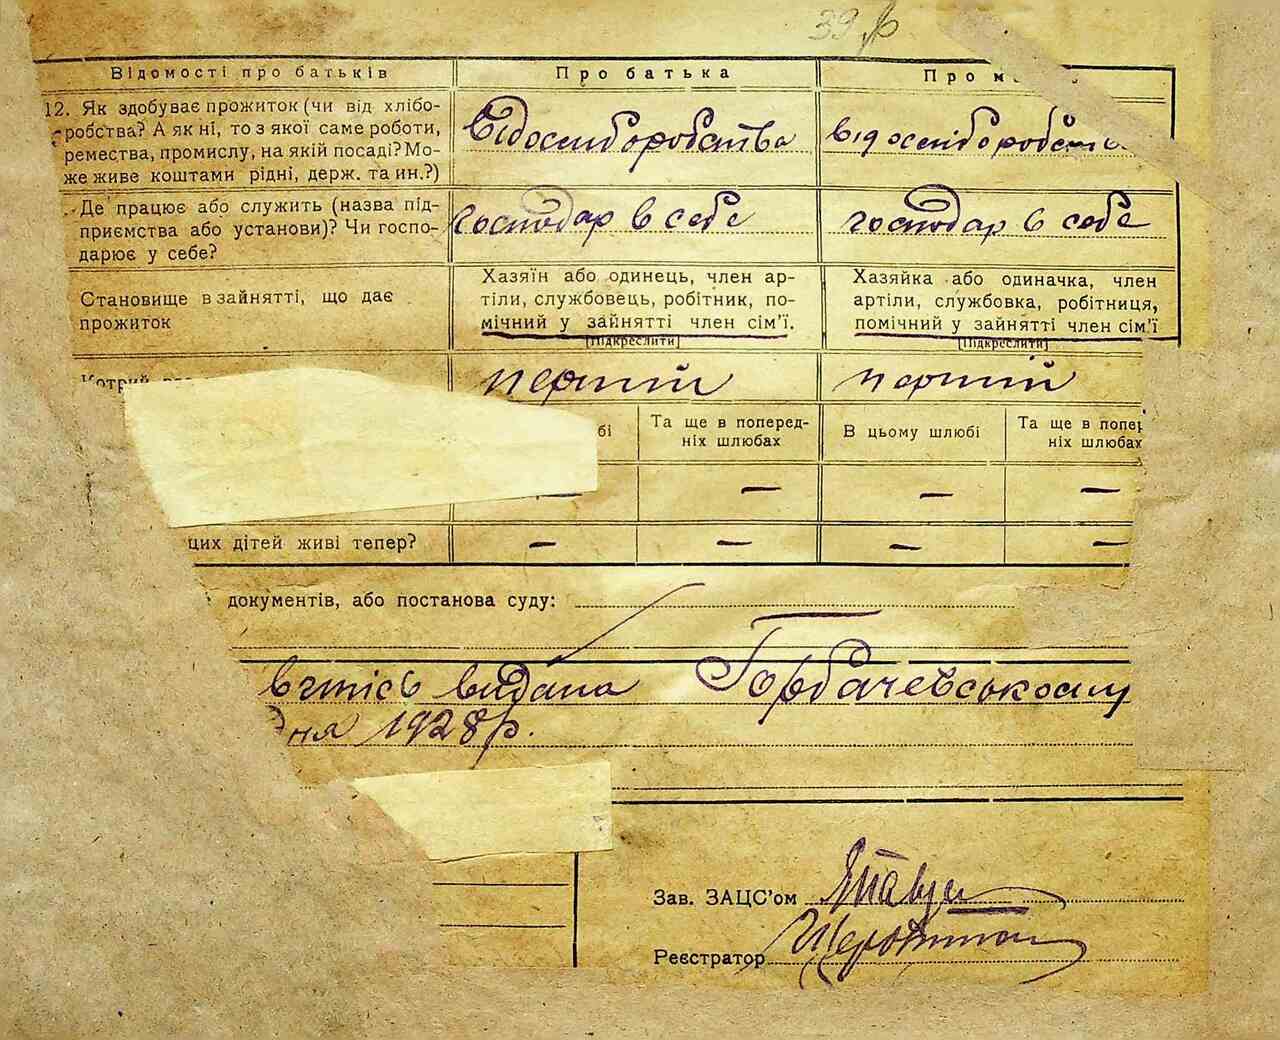 39
Відомості про батьків
Про батька
Про м
12. Як здобуває прожиток (чи від хлібо-
робства? А як ні, то з якої саме роботи,
ремества, промислу, на якій посаді? Мо-
же живе коштами рідні, держ. та ин.?)
Де працює або служить (назва під-
приємства або установи)? Чи госпо-
дарює у себе?
господар в себе
господар в себе
Становище в зайнятті, що дає
прожиток
Хазяїн або одинець, член ар-
тіли, службовець, робітник, по-
мічний у зайнятті член сім'ї.
[Підкреслити]
Хазяйка або одиначка, член
артіли, службовка, робітниця,
помічний у зайнятті член сім'ї
[Підкреслити]
перший
перший
бі
Та ще в поперед-
ніх шлюбах
В цьому шлюбі
Та ще в попер
ніх шлюбах
— — —
цих дітей живі тепер?
— — — —
документів, або постанова суду:
видана Горбачевському
дня 1928 р.
Зав. ЗАЦС'ом
Реєстратор